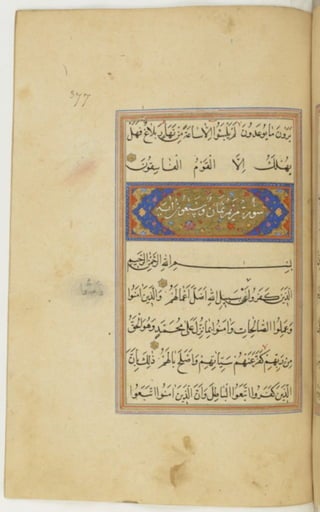 377
يَرَوْنَ مَا يُوعَدُونَ لَمْ يَلْبَثُوا اِلَّا سَاعَةً مِنْ نَهَارٍ بَلَاغٌ فَهَلْ
يُهْلَكُ اِلَّا الْقَوْمُ الْفَاسِقُونَ
سورة ثمان و آية
بِسْمِ اللهِ الرَّحْمٰنِ الرَّحِيمِ
الَّذِينَ كَفَرُوا وَصَدُّوا عَنْ سَبِيلِ اللهِ اَضَلَّ اَعْمَالَهُمْ وَالَّذِينَ اٰمَنُوا
وَعَمِلُوا الصَّالِحَاتِ وَاٰمَنُوا بِمَا نُزِّلَ عَلٰى مُحَمَّدٍ وَهُوَ الْحَقُّ
مِنْ رَبِّهِمْ كَفَّرَ عَنْهُمْ سَيِّئَاتِهِمْ وَاَصْلَحَ بَالَهُمْ ذٰلِكَ بِاَنَّ
الَّذِينَ كَفَرُوا اتَّبَعُوا الْبَاطِلَ وَاَنَّ الَّذِينَ اٰمَنُوا اتَّبَعُوا